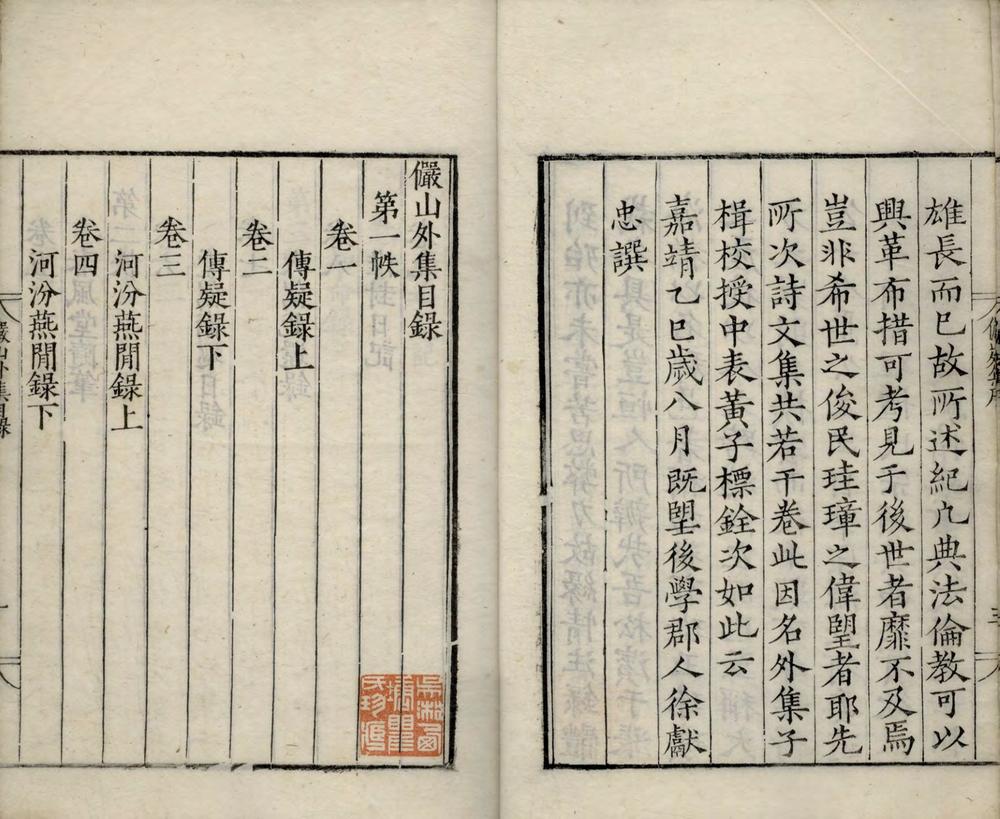 雄長而已故所述紀凡典法倫教可以
興革布措可考見于後世者靡不及焉
豈非希世之俊民珪璋之偉朢者耶先
所次詩文集共若干卷此因名外集子
楫校授中表黃子標銓次如此云
嘉靖乙巳歲八月既朢後學郡人徐獻
忠譔
儼山外集目錄
第一帙
卷一
傳疑錄上
卷二
傳疑錄下
卷三
河汾燕閒錄上
卷四
河汾燕閒錄下
儼山外集目錄